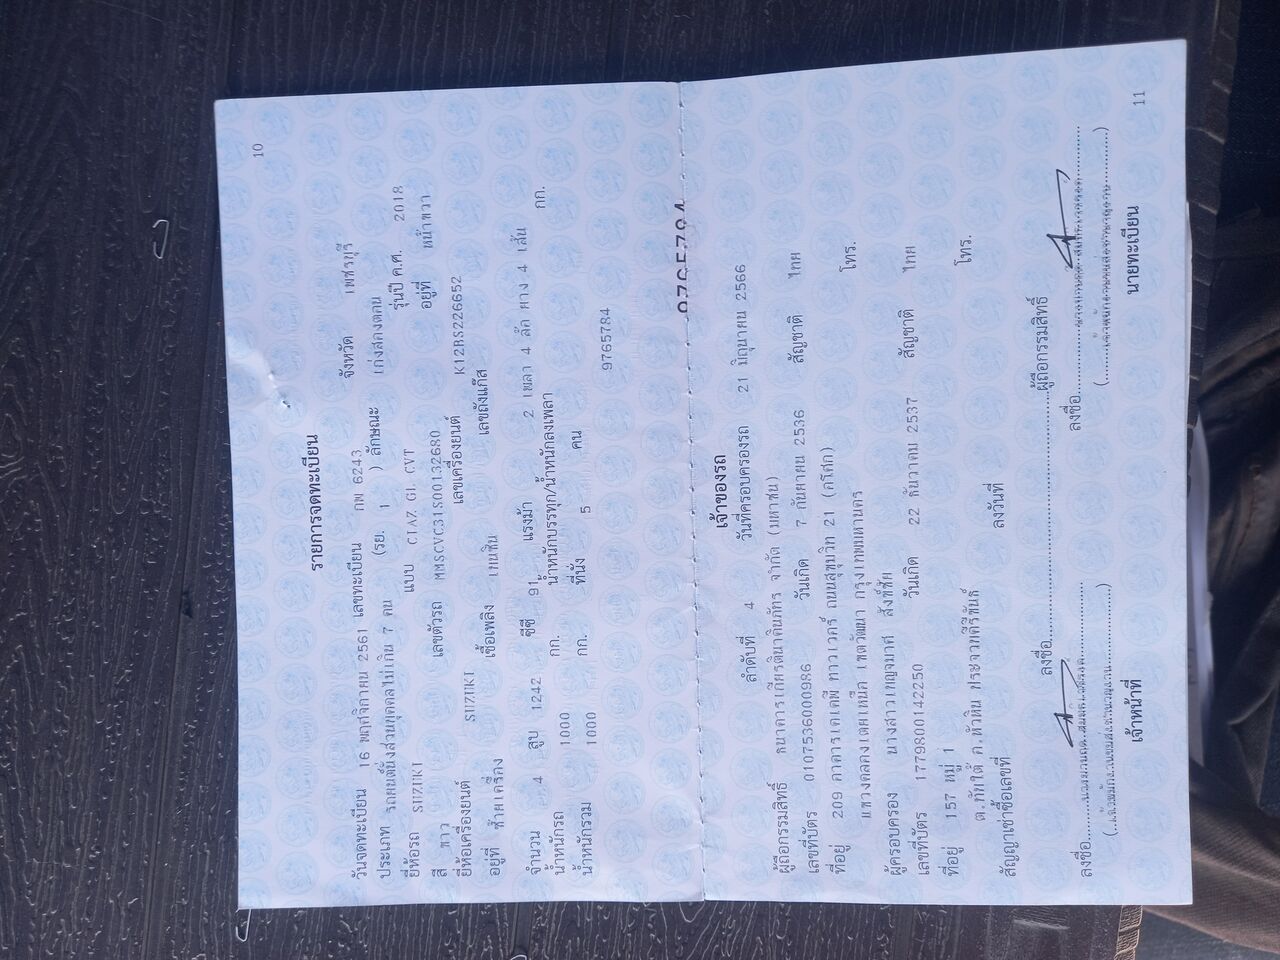 10
รายการจดทะเบียน
วันจดทะเบียน 16 พฤศจิกายน 2561 เลขทะเบียน กพ 6243 จังหวัด เพชรบุรี
ประเภท รถยนต์นั่งส่วนบุคคลไม่เกิน 7 คน (รย. 1 ) ลักษณะ เก๋งสองตอน
ยี่ห้อรถ SUZUKI แบบ CIAZ GL CVT รุ่นปี ค.ศ. 2018
สี ขาว เลขตัวรถ MMSCVC31S00132680 อยู่ที่ หน้าขวา
ยี่ห้อเครื่องยนต์ SUZUKI เลขเครื่องยนต์ K12BS226652
อยู่ที่ ซ้ายเครื่อง เชื้อเพลิง เบนซิน เลขถังแก๊ส
จำนวน 4 สูบ 1242 ซีซี 91 แรงม้า 2 เพลา 4 ล้อ ยาง 4 เส้น
น้ำหนักรถ 1000 กก. น้ำหนักบรรทุก/น้ำหนักลงเพลา กก.
น้ำหนักรวม 1000 กก. ที่นั่ง 5 คน
9765784
เจ้าของรถ
ลำดับที่ 4 วันที่ครอบครองรถ 21 มิถุนายน 2566
ผู้ถือกรรมสิทธิ์ ธนาคารเกียรตินาคินภัทร จำกัด (มหาชน)
เลขที่บัตร 0107536000986 วันเกิด 7 กันยายน 2536 สัญชาติ ไทย
ที่อยู่ 209 อาคารเคเคพี ทาวเวอร์ ถนนสุขุมวิท 21 (อโศก)
แขวงคลองเตยเหนือ เขตวัฒนา กรุงเทพมหานคร โทร.
ผู้ครอบครอง นางสาวเบญจมาศ สังข์ชัย
เลขที่บัตร 1779800142250 วันเกิด 22 ธันวาคม 2537 สัญชาติ ไทย
ที่อยู่ 157 หมู่ 1
ต.ทับใต้ อ.หัวหิน ประจวบคีรีขันธ์ โทร.
สัญญาเช่าซื้อเลขที่ ลงวันที่
ลงชื่อ ผู้ถือกรรมสิทธิ์
ลงชื่อ ลงชื่อ
เจ้าหน้าที่ นายทะเบียน
11